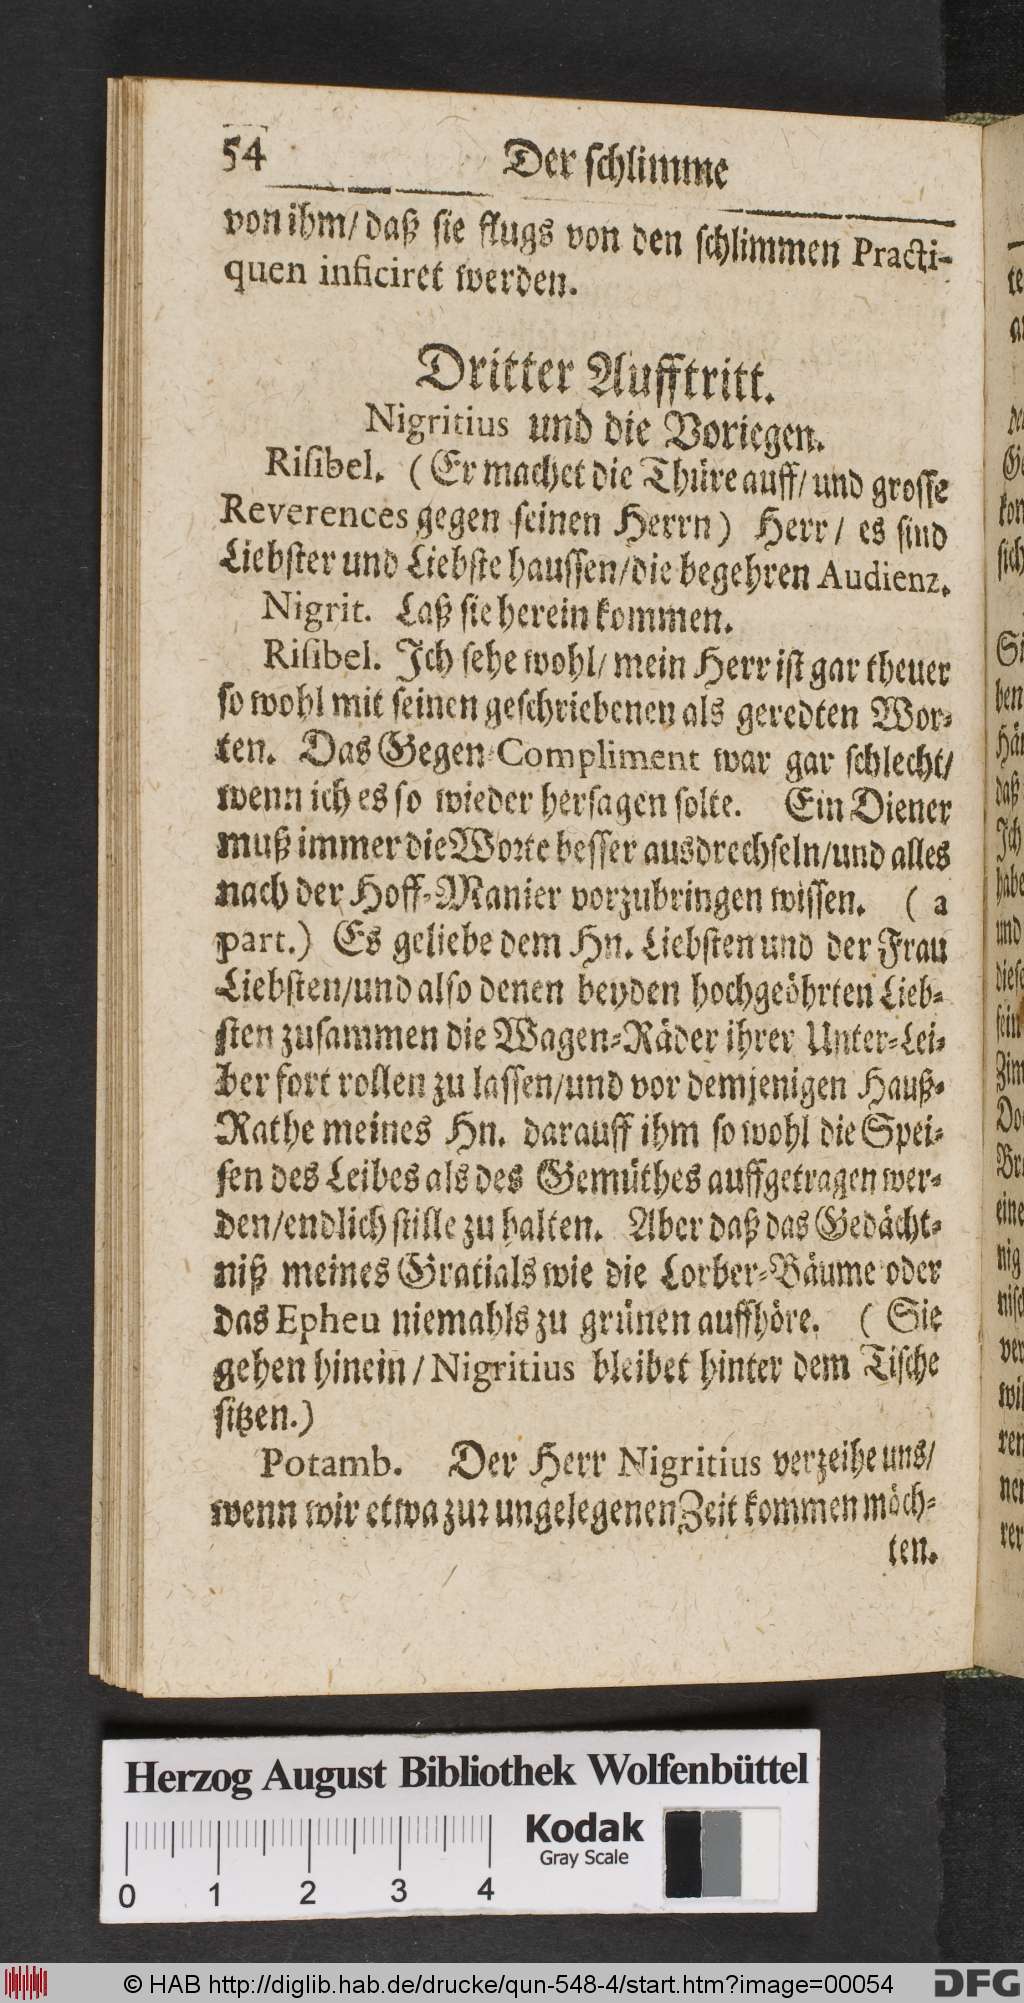 54 Der schlimme
von ihm/ daß sie flugs von den schlimmen Practi-
quen inficiret werden.
Dritter Aufftritt.
Nigritius und die Voriegen.
Risibel. (Er machet die Thüre auff/ und grosse
Reverences gegen seinen Herrn) Herr/ es sind
Liebster und Liebste haussen/ die begehren Audienz.
Nigrit. Laß sie herein kommen.
Risibel. Ich sehe wohl/ mein Herr ist gar theuer
so wohl mit seinen geschriebenen als geredten Wor-
ten. Das Gegen-Compliment war gar schlecht/
wenn ich es so wieder hersagen solte. Ein Diener
muß immer die Worte besser ausdrechseln/ und alles
nach der Hoff-Manier vorzubringen wissen. (a
part.) Es geliebe dem Hn. Liebsten und der Frau
Liebsten/ und also denen beyden hochgeöhrten Lieb-
sten zusammen die Wagen-Räder ihrer Unter-Lei-
ber fort rollen zu lassen/ und vor demjenigen Hauß-
Rathe meines Hn. darauff ihm so wohl die Spei-
sen des Leibes als des Gemüthes auffgetragen wer-
den/ endlich stille zu halten. Aber daß das Gedächt-
niß meines Gratials wie die Lorber-Bäume oder
das Epheu niemahls zu grünen auffhöre. (Sie
gehen hinein/ Nigritius bleibet hinter dem Tische
sitzen.)
Potamb. Der Herr Nigritius verzeihe uns/
wenn wir etwa zur ungelegenen Zeit kommen möch-
ten.
Herzog August Bibliothek Wolfenbüttel
Kodak
Gray Scale
0 1 2 3 4
© HAB http://diglib.hab.de/drucke/qun-548-4/start.htm?image=00054
DFG